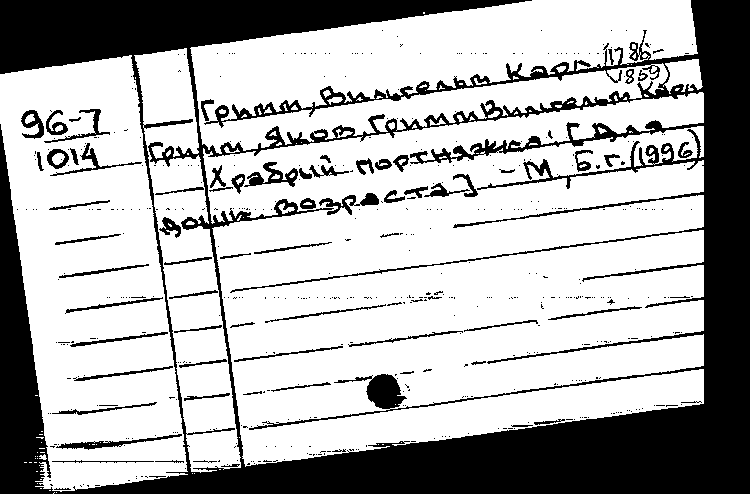 96-7
1014
Гримм, Вильгельм Карл. (1786-1859)
Гримм, Яков, Гримм Вильгельм Карл
Храбрый портняжка: [Для
дошк. возраста]. - М, Б.г. (1996)